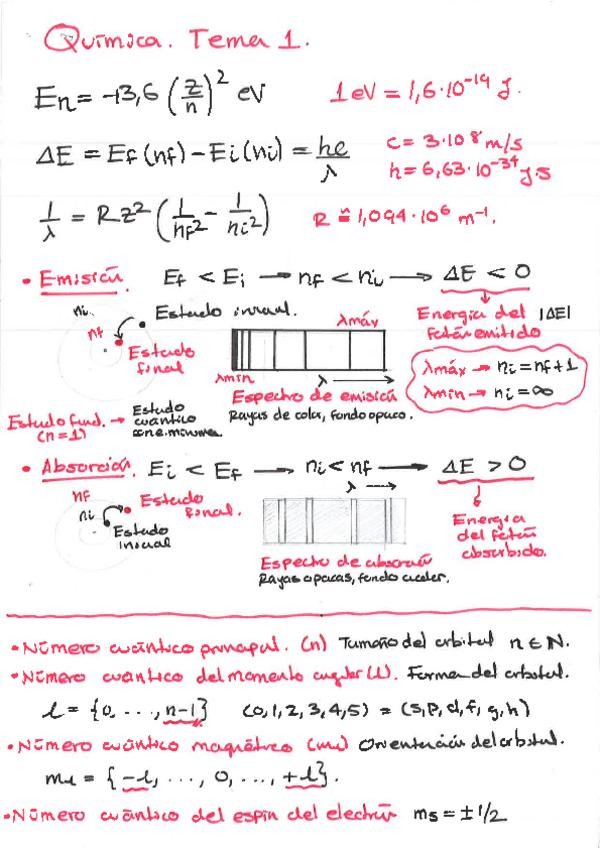 Química. Tema 1.
En = -13,6 (z/n)² eV
1 eV = 1,6·10⁻¹⁹ J.
ΔE = Ef (nf) - Ei (ni) = hc/λ
c = 3·10⁸ m/s
h = 6,63·10⁻³⁴ J·s
1/λ = R z² (1/nf² - 1/ni²)
R ≅ 1,094·10⁶ m⁻¹.
• Emisión. Ef < Ei → nf < ni → ΔE < 0
ni
nf
Estado inicial.
Estado
final
λmáx
λmin
λ →
Espectro de emisión
Rayas de color, fondo opaco.
Energía del |ΔE|
fotón emitido
λmáx → ni = nf+1
λmin → ni = ∞
Estado fund. → Estado
(n=1) cuántico
con e. mínima.
• Absorción. Ei < Ef → ni < nf → ΔE > 0
nf
ni
Estado
final.
Estado
inicial
λ →
Espectro de absorción
Rayas opacas, fondo color.
Energía
del fotón
absorbido.
• Número cuántico principal. (n) Tamaño del orbital n ∈ N.
• Número cuántico del momento angular (l). Forma del orbital.
l = {0, ..., n-1} (0,1,2,3,4,5) = (s,p,d,f,g,h)
• Número cuántico magnético (ml) Orientación del orbital.
ml = {-l, ..., 0, ..., +l}.
• Número cuántico del espín del electrón ms = ±1/2